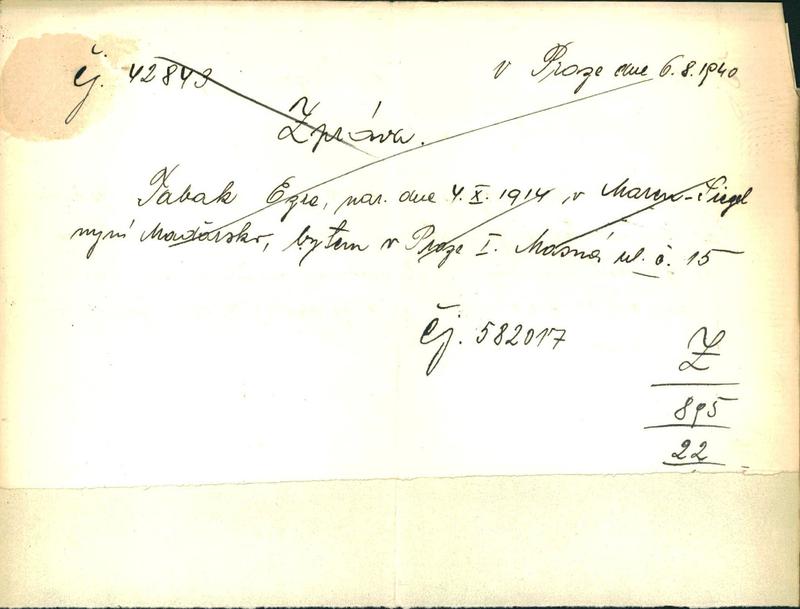 Čj. 42843
v Praze dne 6.8.1940
Zpráva.
Tabak Egre, nar. dne 4.X.1914, v Marm-Siget
nyní Maďarsko, bytem v Praze I. Masná ul. č. 15
Čj. 582017
Z
895
22